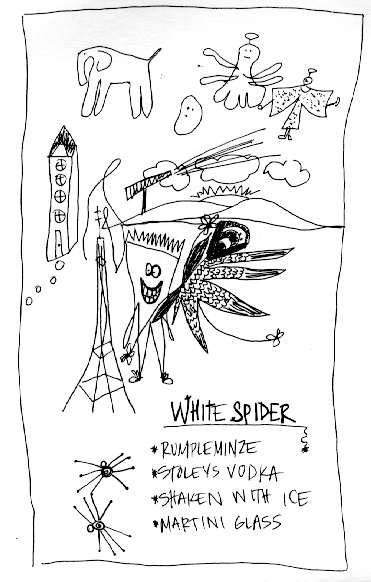 WHITE SPIDER
*RUMPLEMINZE
*STOLEYS VODKA
*SHAKEN WITH ICE
*MARTINI GLASS